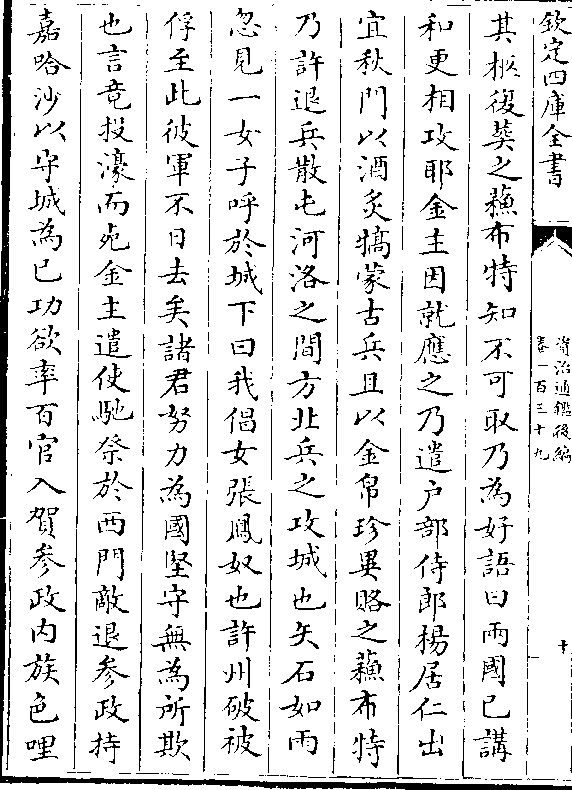 欽定四庫全書
資治通鑑後編
卷一百三十九
十
其柩後葬之蘓布特知不可取乃為好語曰兩國已講
和更相攻耶金主因就應之乃遣户部侍郎楊居仁出
宜秋門以酒炙犒蒙古兵且以金帛珍異賂之蘓布特
乃許退兵散屯河洛之間方北兵之攻城也矢石如雨
忽見一女子呼於城下曰我倡女張鳳奴也許州破被
俘至此彼軍不日去矣諸君努力為國堅守無為所欺
也言竟投濠而死金主遣使馳祭於西門敵退參政持
嘉哈沙以守城為已功欲率百官入賀參政内族色哩